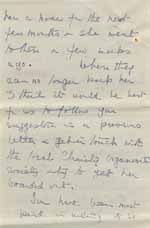 has a home for the next
few months or she went
to them a few weeks
ago. When they
can no longer keep her
I think it would be best
for us to follow your
suggestion in a previous
letter & get in touch with
the local Charity Organisation
Society why to get her
boarded out.
You have been most
kind in writing &